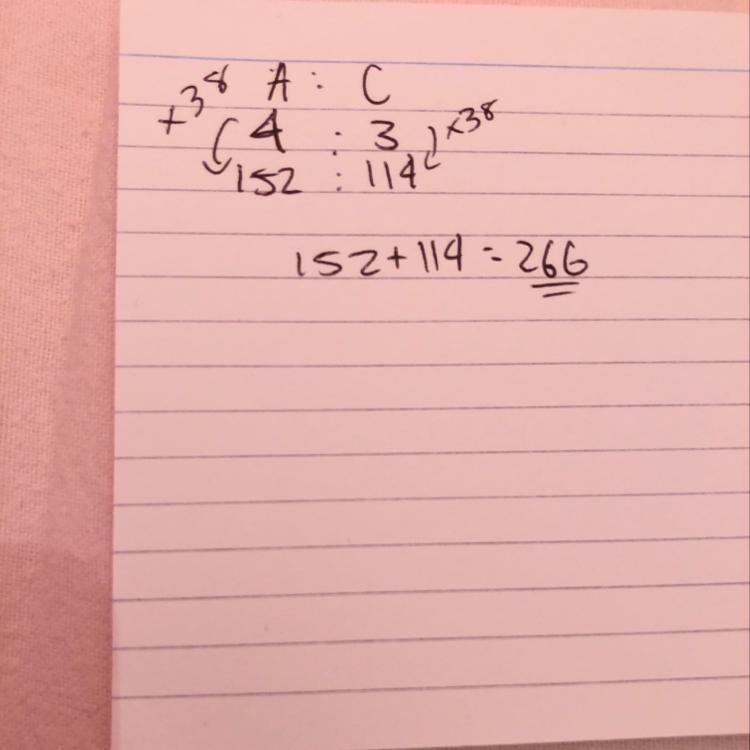 A : C
+38 4 : 3 ×38
152 : 114
152+114 = 266